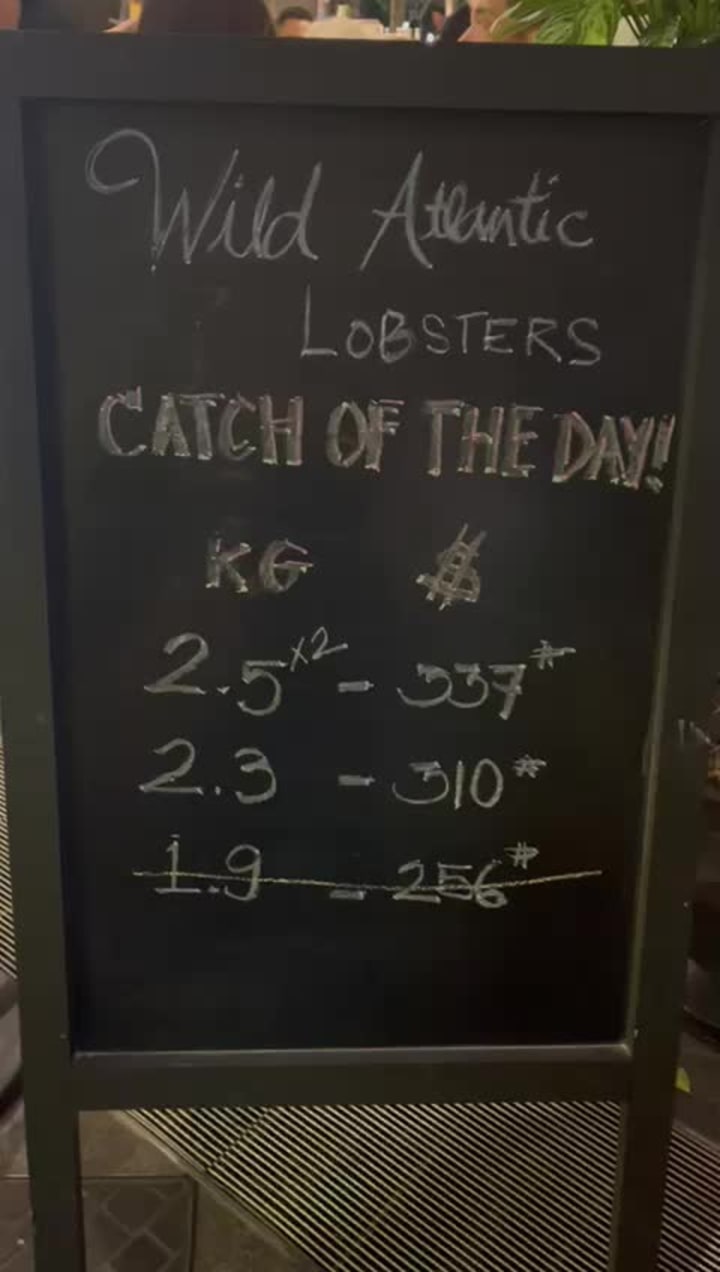 Wild Atlantic
LOBSTERS
CATCH OF THE DAY!
KG $
2.5 x2 - 337#
2.3 - 310#
1.9 - 256#